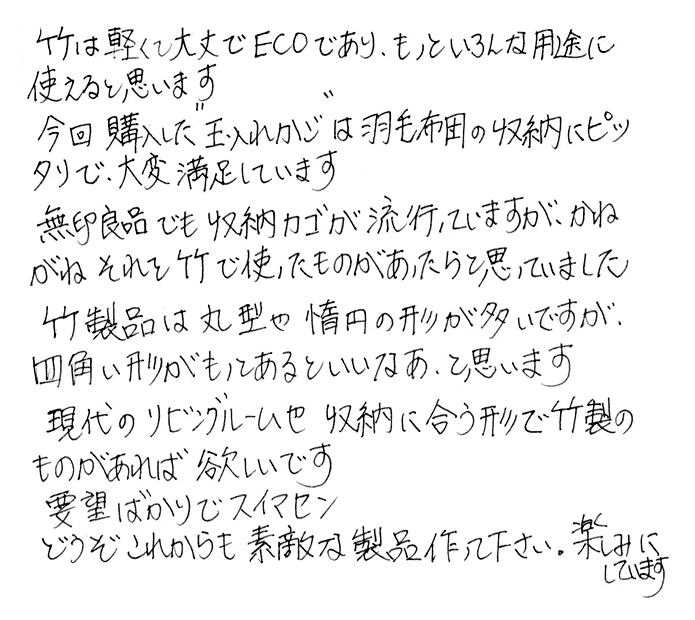 竹は軽くて大丈でECOであり、もっといろんな用途に
使えると思います
今回 購入した"玉入れかご"は羽毛布団の収納にピッ
タリで、大変満足しています
無印良品でも収納カゴが流行っていますが、かね
がねそれを竹で使ったものがあったらと思っていました
竹製品は丸型や惰円の形が多いですが、
四角い形がもっとあるといいなあ、と思います
現代のリビングルームや収納に合う形で竹製の
ものがあれば欲しいです
要望ばかりでスイマセン
どうぞこれからも素敵な製品作って下さい。楽しみに
しています